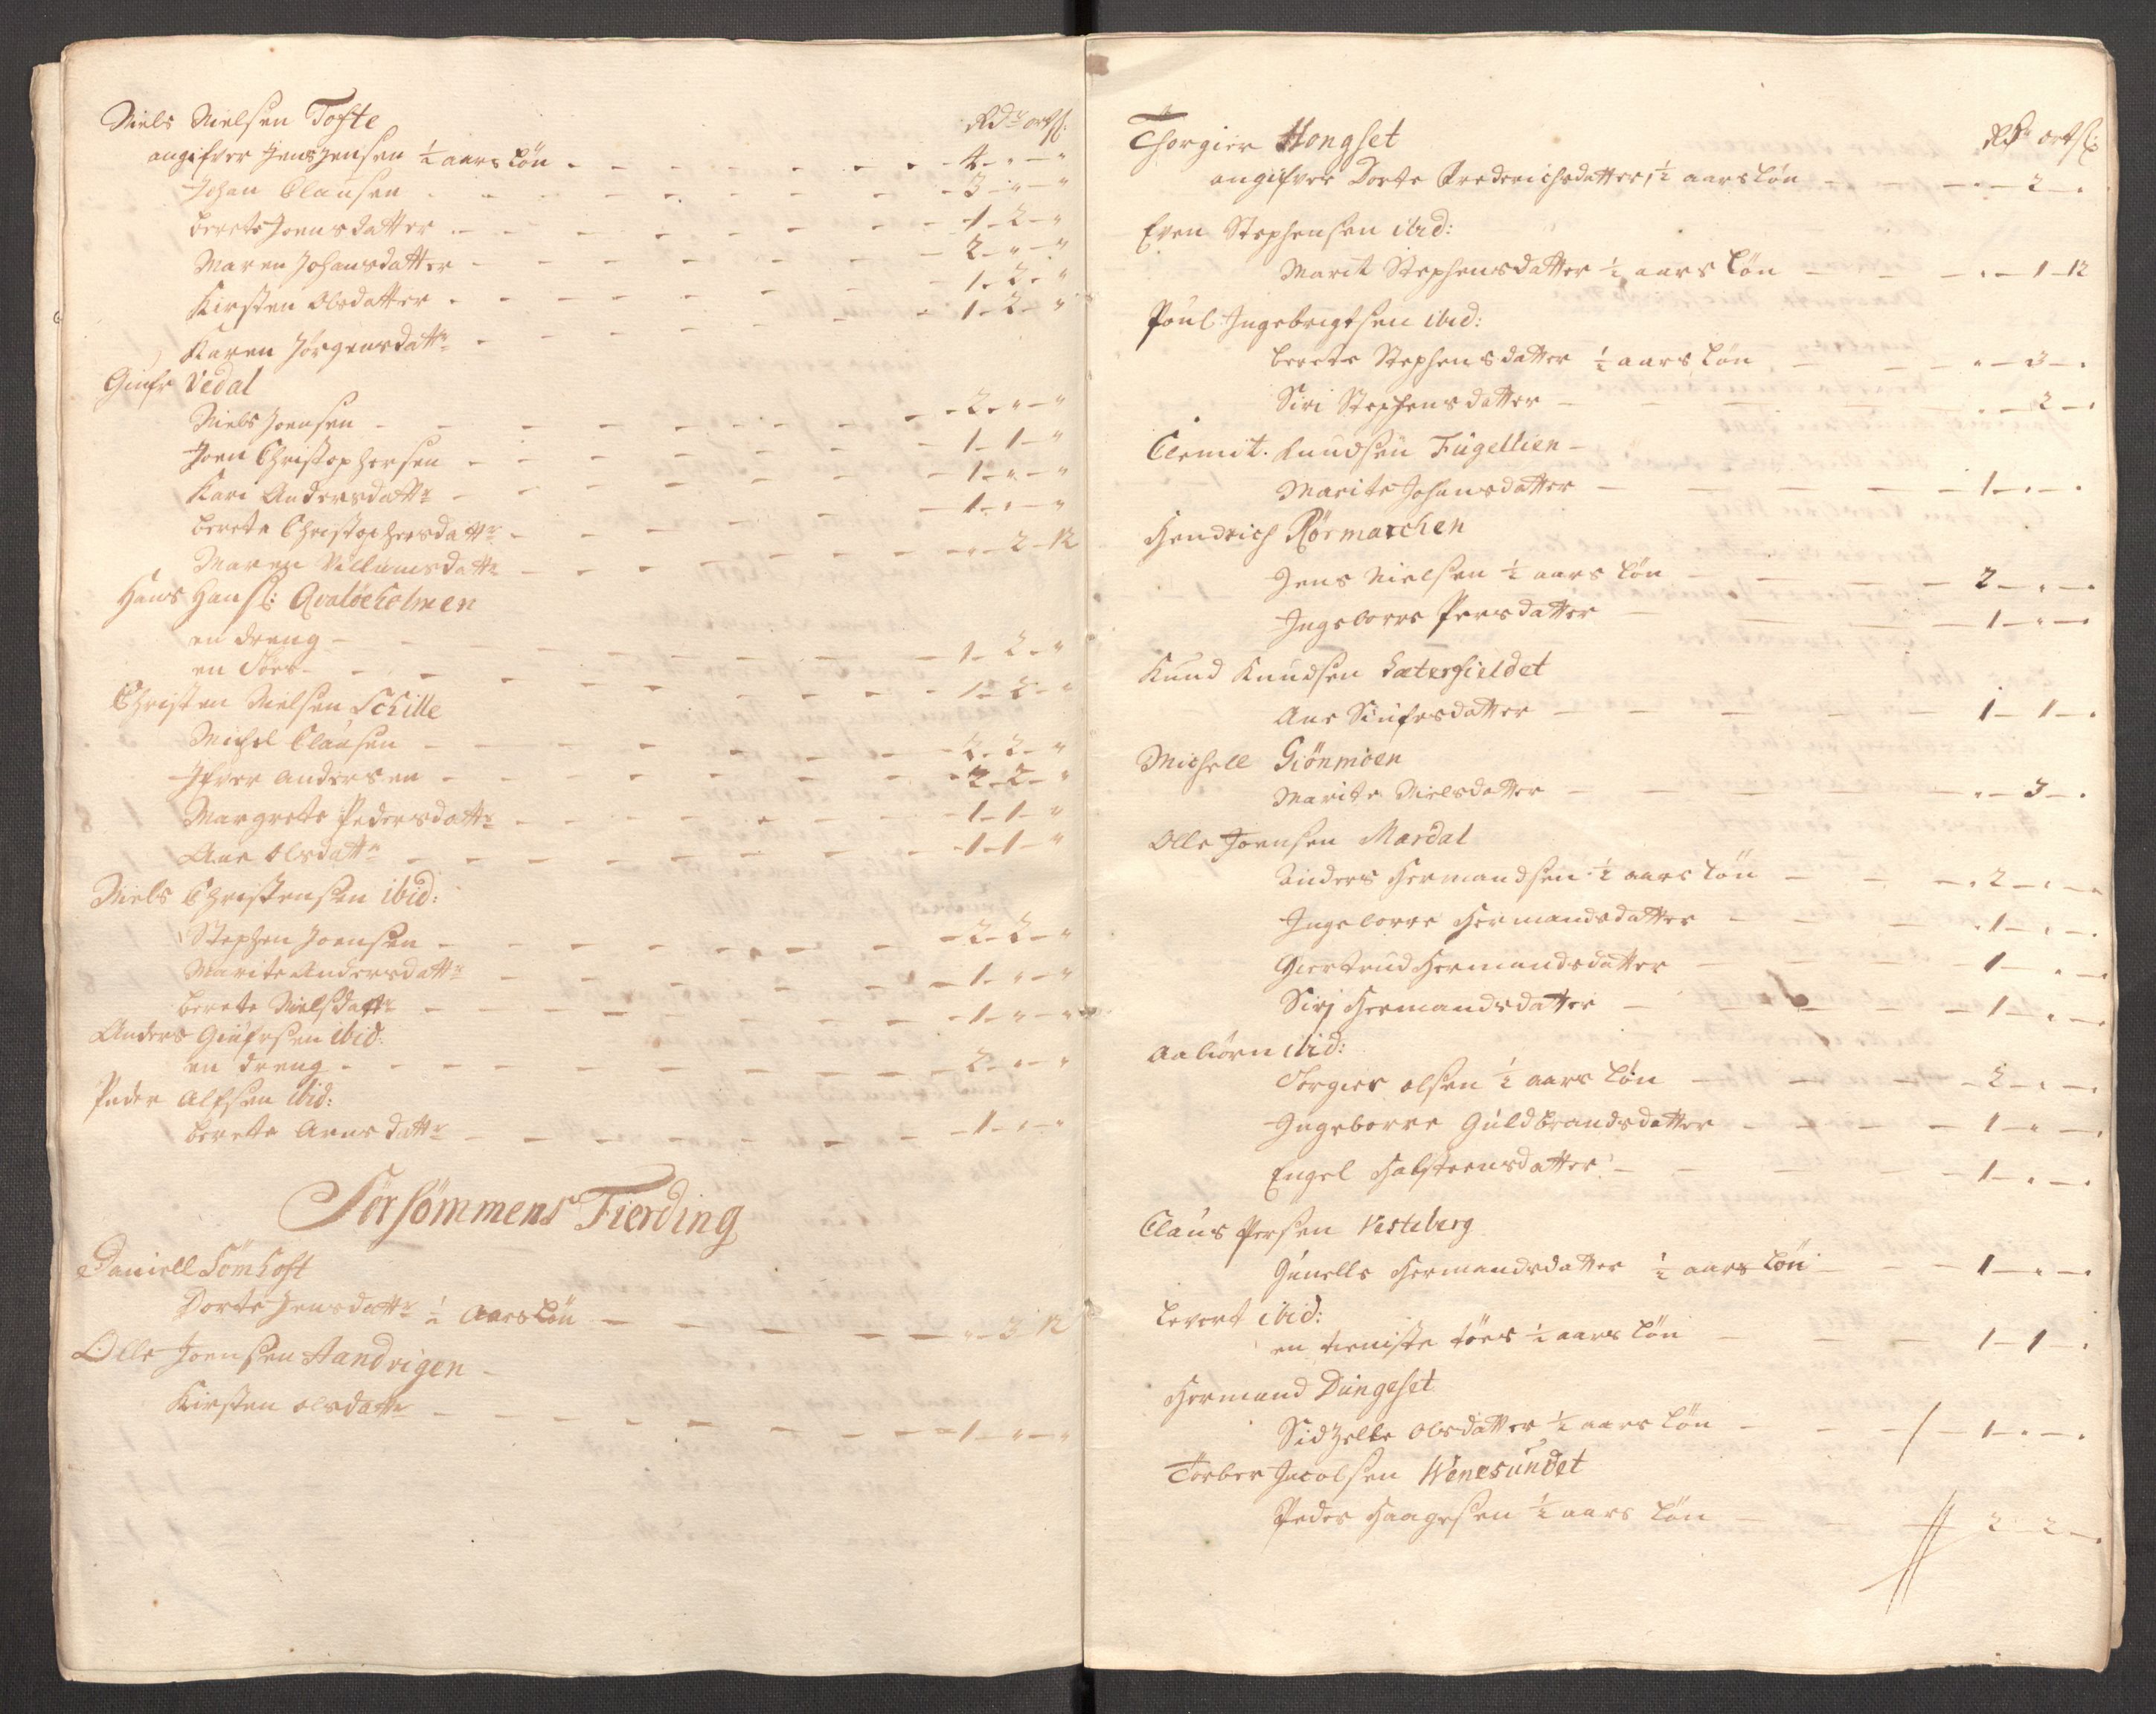 Niels Nielsen Tofte Rdr ort ß:
angifver Jens Jensen ½ aars Løn - 4 - " - "
Johan Clausen - 3 - " - "
Berete Joensdatter - 1 - 2 - "
Maren Johansdatter - 2 - " - "
Kirsten Olsdatter - 1 - 2 - "
Karen Jørgensdattr - 1 - 2 - "
Giufr Vedal
Niels Joensen - 2 - " - "
Joen Christophersen - 1 - 1 - "
Kari Andersdattr - 1 - " - "
Berete Christophersdattr - 1 - " - "
Maren Villumsdattr - " - 2 - 12
Hans Hanß: Qvaløeholmen
en dreng - 1 - 2 - "
en Tøes - 1 - 2 - "
Christen Nielsen Schille
Michel Clausen - 2 - 2 - "
Ifver Andersen - 2 - 2 - "
Margrete Pedersdattr - 1 - 1 - "
Ane Olsdattr - 1 - 1 - "
Niels Christensen ibid:
Stephen Joensen - 2 - 2 - "
Marite Andersdattr - 1 - " - "
Berete Nielsdattr - 1 - " - "
Anders Giufesen ibid:
en dreng - 2 - " - "
Peder Alfsen ibid:
Berete Arnsdattr - 1 - " - "
Sørsømmens Fierding
Daniell Sømhoft
Dorte Jensdattr ½ Aars Løn - " - 3 - 12
Olle Joensen Aandvigen
Kirsten Olsdattr - 1 - " - "
Thorgier Hongset Rdr ort ß:
angifver Dorte Frederichsdatter, ½ aars Løn - " - 2 - "
Even Stephensen ibid:
Marit Stephensdatter ½ aars Løn - " - 1 - 12
Poul Ingebrigtsen ibid:
Berete Stephensdatter ½ aars Løn - " - 3 - "
Siri Stephensdatter - " - 2 - "
Clemit Knudsen Fugellien
Marite Johansdatter - 1 - " - "
Hendrich Rørmarchen
Jens Nielsen ½ aars Løn - 2 - " - "
Ingeborre Persdatter - 1 - " - "
Knud Knudsen Sæterfieldet
Ane Siufesdatter - 1 - 1 - "
Michell Grønmoen
Marite Nielsdatter - " - 3 - "
Olle Joensen Mardal
Anders Hermandsen ½ aars Løn - 2 - " - "
Ingeborre Hermandsdatter - 1 - " - "
Giertrud Hermandsdatter - 1 - " - "
Sirj Hermandsdatter - 1 - " - "
Aabiørn ibid:
Torgier Olsen ½ aars Løn - 2 - " - "
Ingeborre Guldbrandsdatter - 1 - " - "
Engel Halsteensdatter - 1 - " - "
Claus Persen Vesteberg
Gunelle Hermandsdatter ½ aars Løn - 1 - " - "
Levert ibid:
en tieniste tøes ½ aars Løn - 1 - 1 - "
Hermand Dungeset
Sidzelle Olsdatter ½ aars Løn - 1 - " - "
Torber Jacobsen Wenesundet
Peder Haagesen ½ aars Løn - 2 - 2 - "